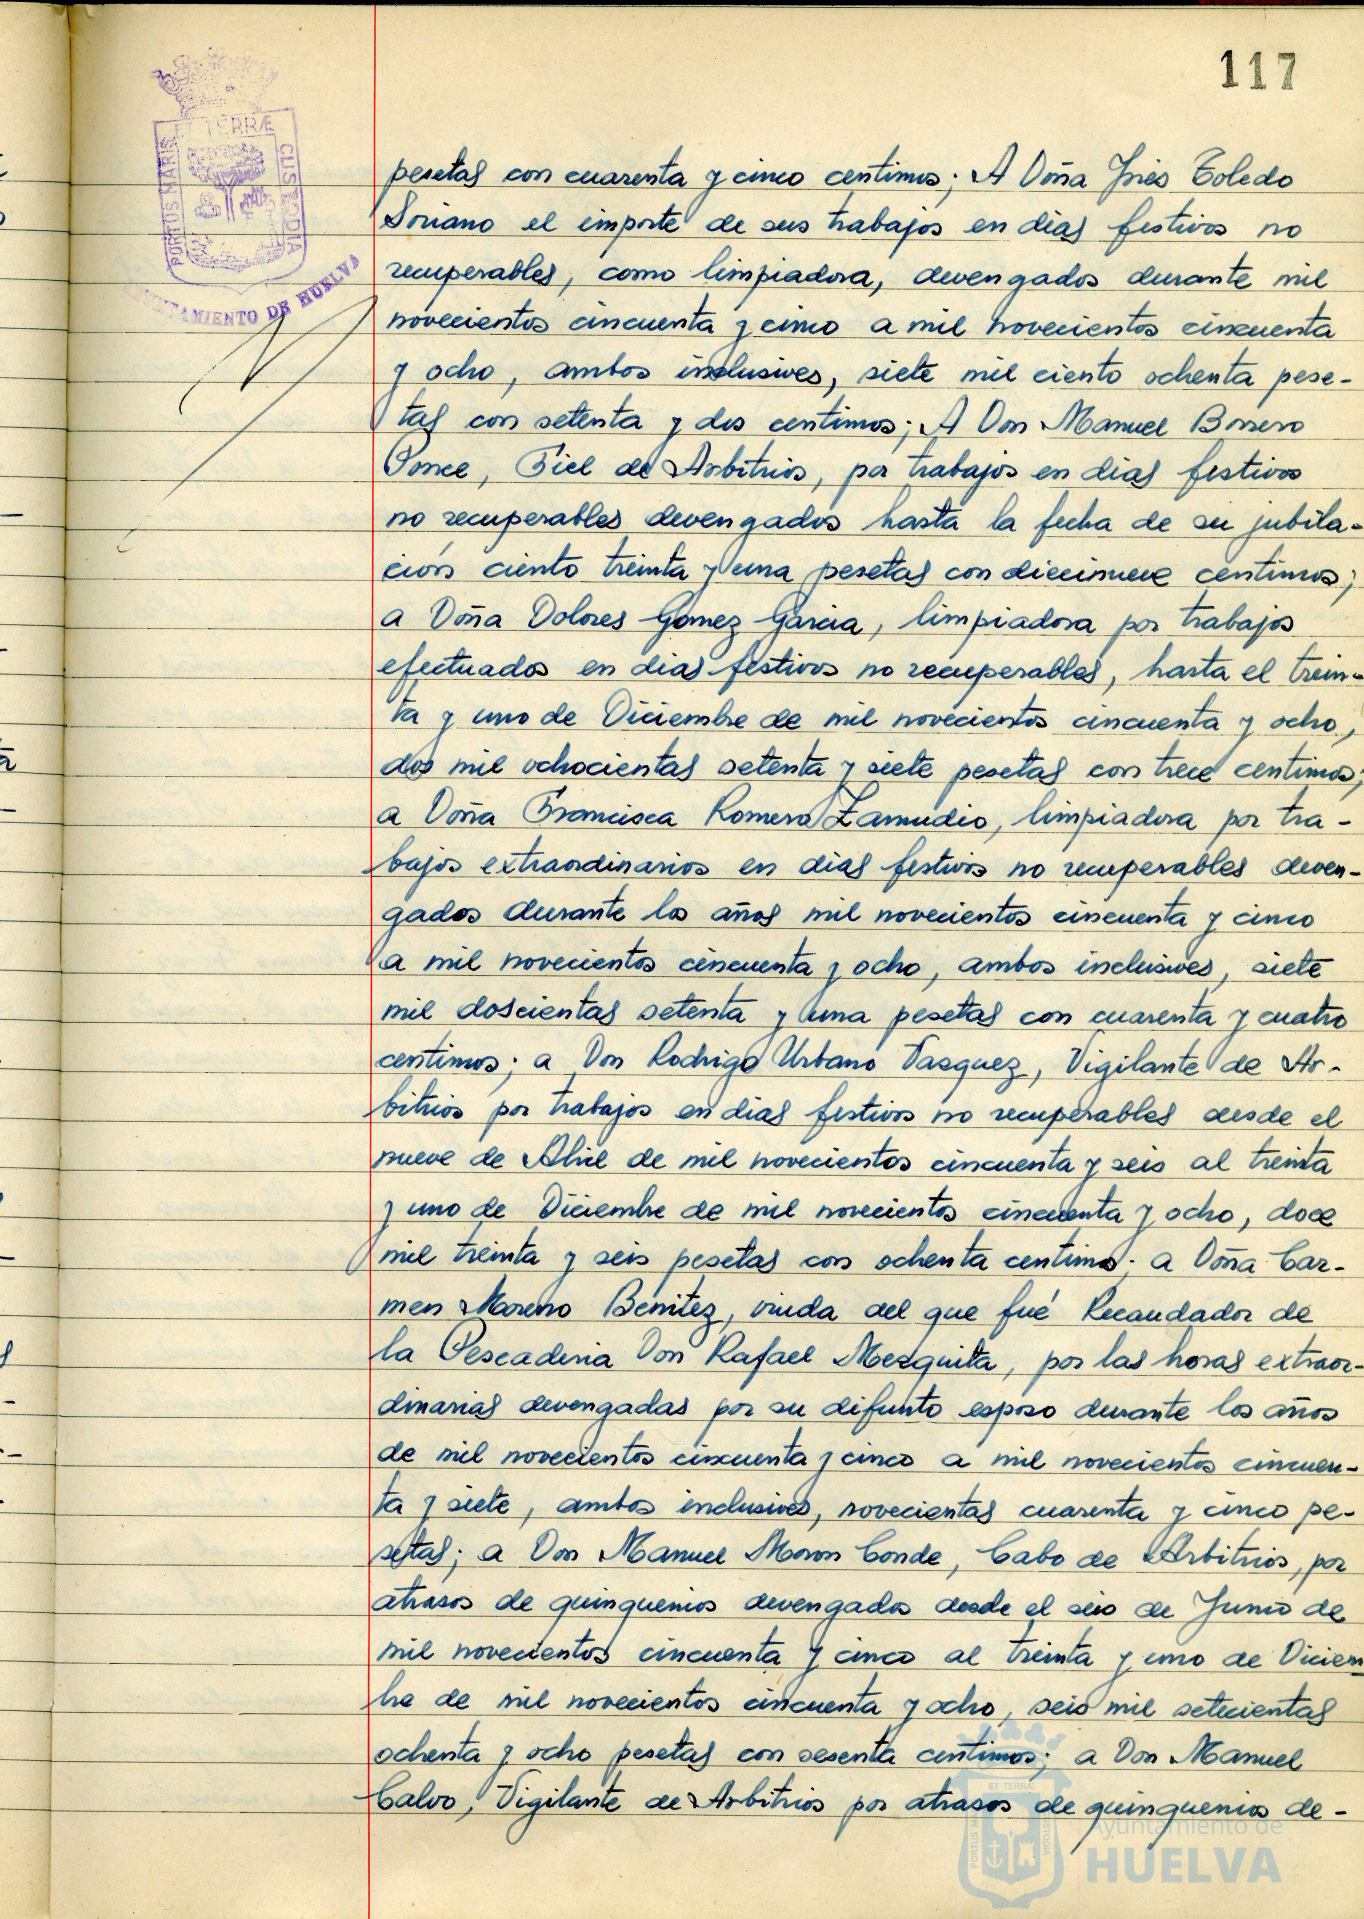 117
TERRÆ
PORTUS MARIS
CUSTODIA
AYUNTAMIENTO DE HUELVA
pesetas con cuarenta y cinco centimos; A Doña Ynés Toledo
Soriano el importe de sus trabajos en dias festivos no
recuperables, como limpiadora, devengados durante mil
novecientos cincuenta y cinco a mil novecientos cincuenta
y ocho, ambos inclusives, siete mil ciento ochenta pese-
tas con setenta y dos centimos; A Don Manuel Borrero
Ponce, Fiel de Arbitrios, por trabajos en dias festivos
no recuperables devengados hasta la fecha de su jubila-
ción ciento treinta y una pesetas con diecinueve centimos;
a Doña Dolores Gomez Garcia, limpiadora por trabajos
efectuados en dias festivos no recuperables, hasta el trein-
ta y uno de Diciembre de mil novecientos cincuenta y ocho,
dos mil ochocientas setenta y siete pesetas con trece centimos;
a Doña Francisca Romero Zamudio, limpiadora por tra-
bajos extraordinarios en dias festivos no recuperables deven-
gados durante los años mil novecientos cincuenta y cinco
a mil novecientos cincuenta y ocho, ambos inclusives, siete
mil doscientas setenta y una pesetas con cuarenta y cuatro
centimos; a Don Rodrigo Urbano Vasquez, Vigilante de Ar-
bitrios por trabajos en dias festivos no recuperables desde el
nueve de Abril de mil novecientos cincuenta y seis al treinta
y uno de Diciembre de mil novecientos cincuenta y ocho, doce
mil treinta y seis pesetas con ochenta centimo; a Doña Car-
men Moreno Benitez, viuda del que fué Recaudador de
la Pescaderia Don Rafael Mezquita, por las horas extraor-
dinarias devengadas por su difunto esposo durante los años
de mil novecientos cincuenta y cinco a mil novecientos cincuen-
ta y siete, ambos inclusives, novecientas cuarenta y cinco pe-
setas; a Don Manuel Moron Conde, Cabo de Arbitrios, por
atrasos de quinquenios devengados desde el seis de Junio de
mil novecientos cincuenta y cinco al treinta y uno de Diciem
bre de mil novecientos cincuenta y ocho, seis mil setecientas
ochenta y ocho pesetas con sesenta centimos; a Don Manuel
Calvo, Vigilante de Arbitrios por atrasos de quinquenios de-
Ayuntamiento de
HUELVA